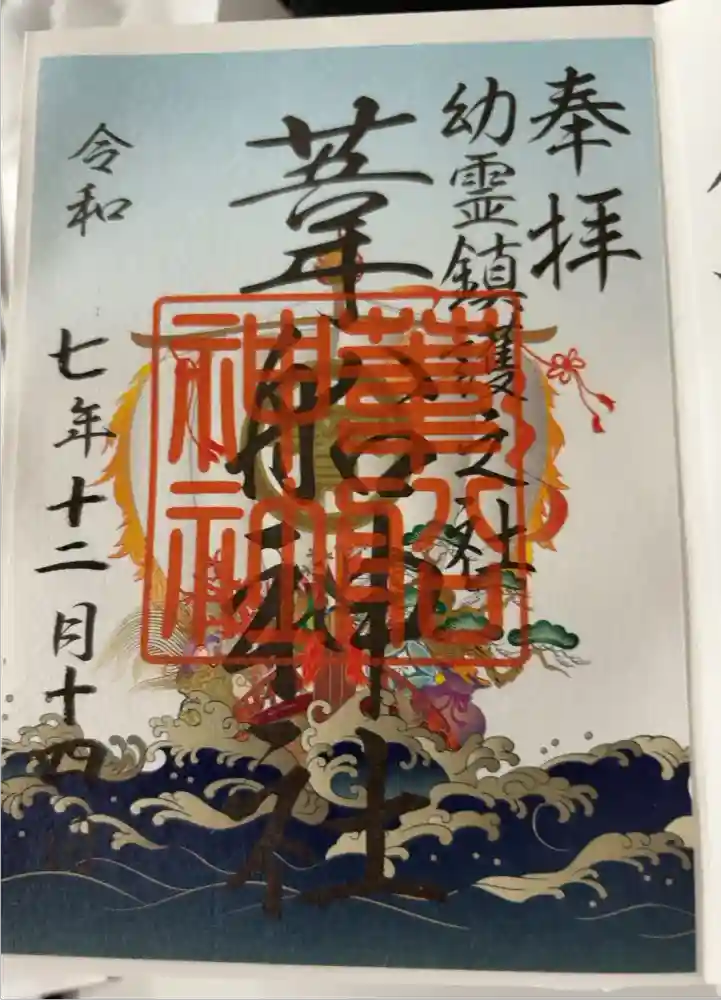 奉拝
幼霊鎮護之社
葦船神社
令和七年十二月十四
葦船神社